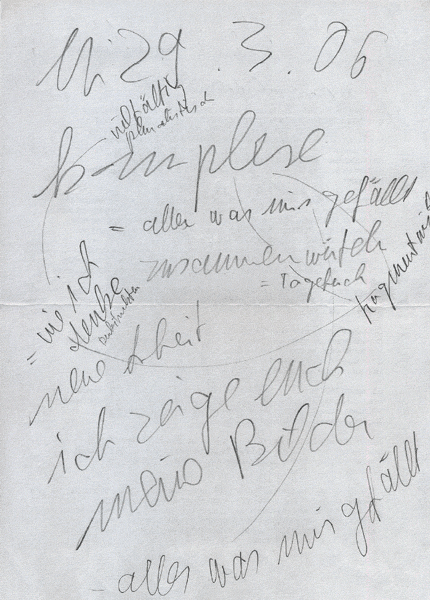 Mi 29.3.06
vielfältig
pluralistisch
komplexe
= alles was mir gefällt
zusammenwürfeln
= Tagebuch
fragmentarisch
= wie ich
denke
neue Arbeit
ich zeige euch
meine Bilder
- alles was mir gefällt